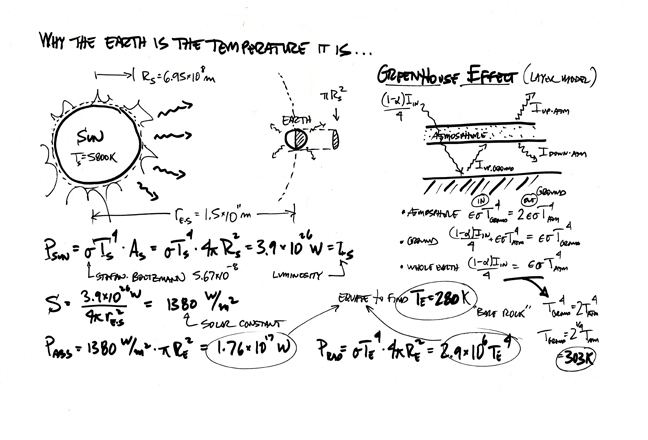 WHY THE EARTH IS THE TEMPERATURE IT IS...
R_S = 6.95×10⁸ m
SUN
T_S = 5800K
EARTH
πR_S²
r_E-S = 1.5×10¹¹ m
P_SUN = σT_S⁴ · A_S = σT_S⁴ · 4πR_S² = 3.9×10²⁶ W = L_S
STEFAN-BOLTZMANN 5.67×10⁻⁸
LUMINOSITY
S = 3.9×10²⁶ W / 4π r_E-S² = 1380 W/m²
SOLAR CONSTANT
P_ABS = 1380 W/m² · πR_E² = 1.76×10¹⁷ W
EQUATE TO FIND T_E = 280K
"BARE ROCK"
P_RAD = σT_E⁴ · 4πR_E² = 2.9×10⁶ T_E⁴
GREENHOUSE EFFECT (LAYER MODEL)
(1-α)I_IN / 4
I UP,ATM
ATMOSPHERE
I UP,GROUND
I DOWN,ATM
GROUND
IN OUT
• ATMOSPHERE εσT_GROUND⁴ = 2εσT_ATM⁴
• GROUND (1-α)I_IN / 4 + εσT_ATM⁴ = εσT_GROUND⁴
• WHOLE EARTH (1-α)I_IN / 4 = εσT_ATM⁴
T_GROUND⁴ = 2T_ATM⁴
T_GROUND = 2^¼ T_ATM
= 303K